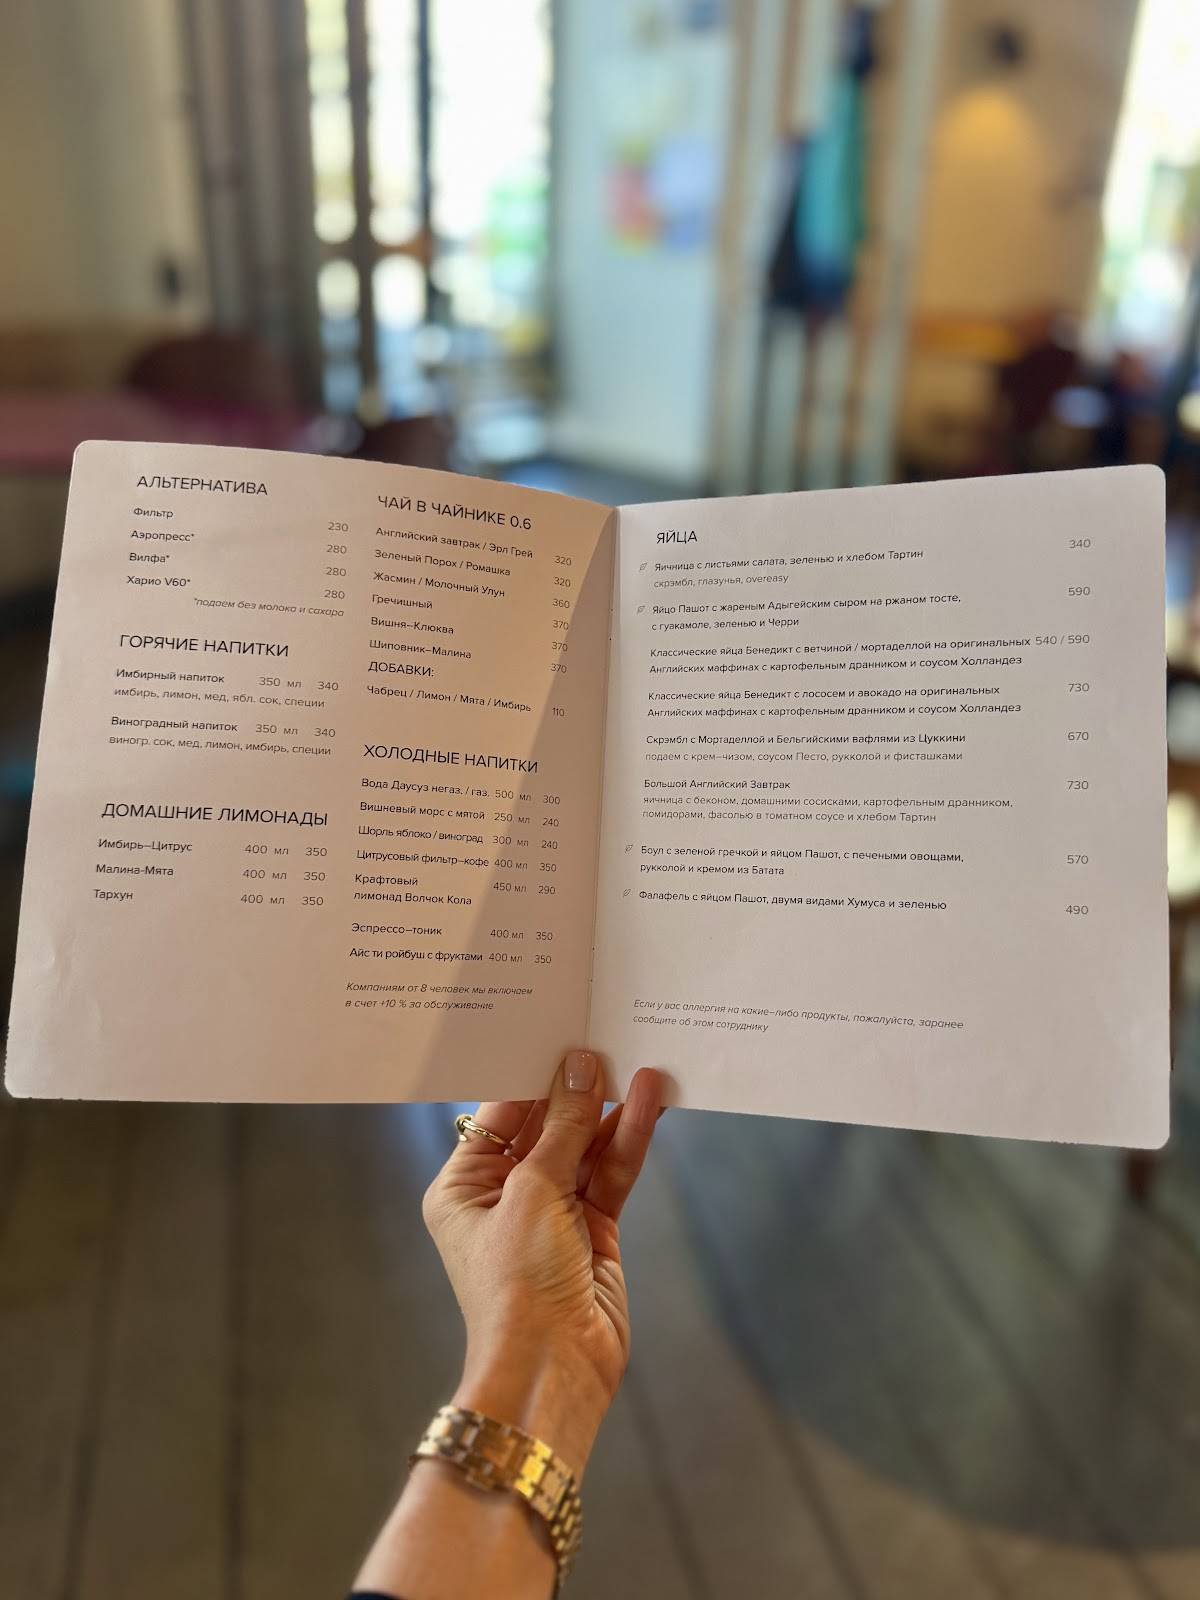 АЛЬТЕРНАТИВА
Фильтр 230
Аэропресс* 280
Вилфа* 280
Харио V60* 280
*подаем без молока и сахара
ГОРЯЧИЕ НАПИТКИ
Имбирный напиток 350 мл 340
имбирь, лимон, мед, ябл. сок, специи
Виноградный напиток 350 мл 340
виногр. сок, мед, лимон, имбирь, специи
ДОМАШНИЕ ЛИМОНАДЫ
Имбирь–Цитрус 400 мл 350
Малина-Мята 400 мл 350
Тархун 400 мл 350
ЧАЙ В ЧАЙНИКЕ 0.6
Английский завтрак / Эрл Грей 320
Зеленый Порох / Ромашка 320
Жасмин / Молочный Улун 360
Гречишный 370
Вишня–Клюква 370
Шиповник–Малина 370
ДОБАВКИ:
Чабрец / Лимон / Мята / Имбирь 110
ХОЛОДНЫЕ НАПИТКИ
Вода Даусуз негаз. / газ. 500 мл 300
Вишневый морс с мятой 250 мл 240
Шорль яблоко / виноград 300 мл 240
Цитрусовый фильтр–кофе 400 мл 350
Крафтовый 450 мл 290
лимонад Волчок Кола
Эспрессо–тоник 400 мл 350
Айс ти ройбуш с фруктами 400 мл 350
Компаниям от 8 человек мы включаем
в счет +10 % за обслуживание
ЯЙЦА
Яичница с листьями салата, зеленью и хлебом Тартин 340
скрэмбл, глазунья, overeasy
Яйцо Пашот с жареным Адыгейским сыром на ржаном тосте, 590
с гуакамоле, зеленью и Черри
Классические яйца Бенедикт с ветчиной / мортаделлой на оригинальных 540 / 590
Английских маффинах с картофельным дранником и соусом Холландез
Классические яйца Бенедикт с лососем и авокадо на оригинальных 730
Английских маффинах с картофельным дранником и соусом Холландез
Скрэмбл с Мортаделлой и Бельгийскими вафлями из Цуккини 670
подаем с крем–чизом, соусом Песто, рукколой и фисташками
Большой Английский Завтрак 730
яичница с беконом, домашними сосисками, картофельным дранником,
помидорами, фасолью в томатном соусе и хлебом Тартин
Боул с зеленой гречкой и яйцом Пашот, с печеными овощами, 570
рукколой и кремом из Батата
Фалафель с яйцом Пашот, двумя видами Хумуса и зеленью 490
Если у вас аллергия на какие–либо продукты, пожалуйста, заранее
сообщите об этом сотруднику